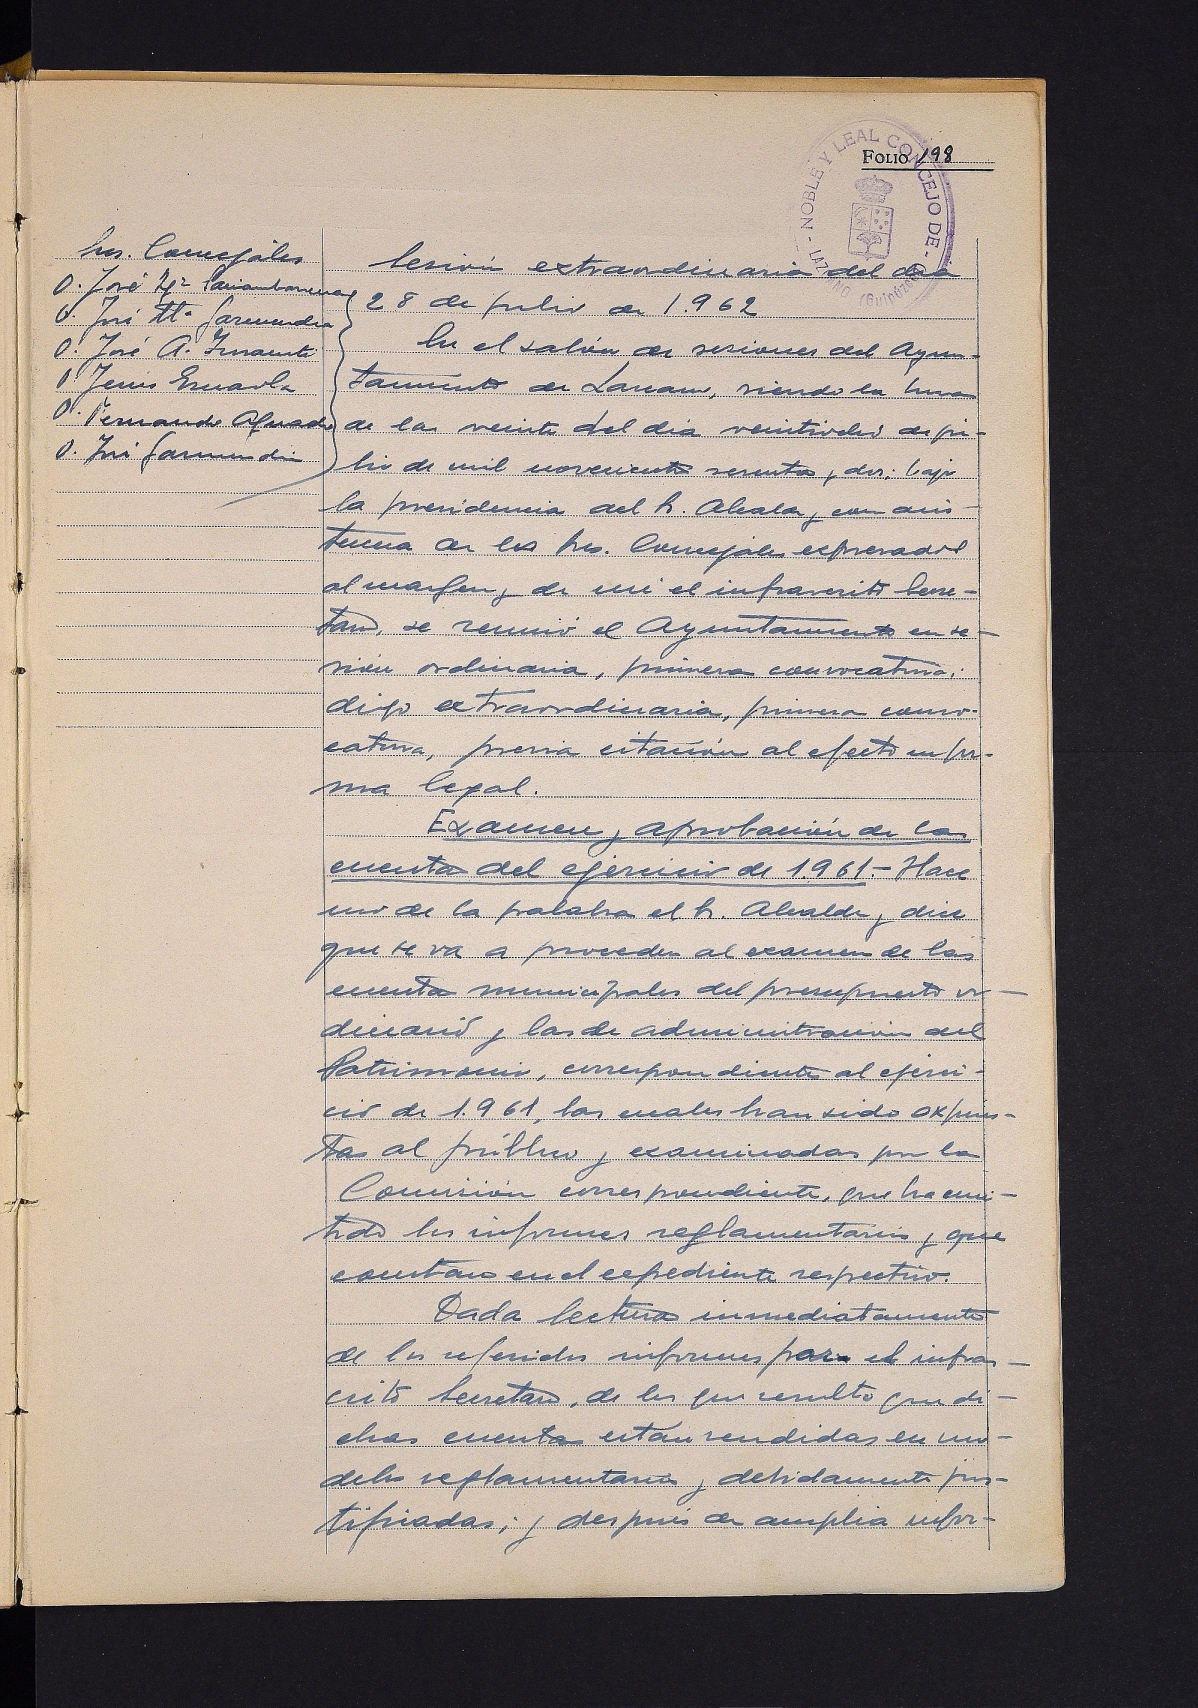 FOLIO 198
NOBLE Y LEAL CONCEJO DE - LAZCANO (Guipúzcoa)
Sres. Concejales
D. José Mª
D. José Mª Garmendia
D. José A. Insausti
D. Jesús
D. Fernando Aguado
D. José Garmendia
Sesión extraordinaria del dia
28 de julio de 1.962
En el salón de sesiones del Ayun-
tamiento de Lazcano, siendo la hora
de las veinte del dia veintiocho de ju-
lio de mil novecientos sesenta y dos; bajo
la presidencia del Sr. Alcalde y con asis-
tencia de los Sres. Concejales expresados
al margen y de mi el infrascrito Secre-
tario, se reunió el Ayuntamiento en se-
sión ordinaria, primera convocatoria;
digo extraordinaria, primera convo-
catoria, previa citación al efecto en for-
ma legal.
Examen y aprobación de las
cuentas del ejercicio de 1961.- Hace
uso de la palabra el Sr. Alcalde y dice
que se va a proceder al examen de las
cuentas municipales del presupuesto or-
dinario y las de administración del
Patrimonio, correspondientes al ejerci-
cio de 1.961, las cuales han sido expues-
tas al público y examinadas por la
Comisión correspondiente, que ha emi-
tido los informes reglamentarios y que
constan en el expediente respectivo.
Dada lectura inmediatamente
de los referidos informes por el infras-
crito Secretario, de los que resulta que di-
chas cuentas estan rendidas en mo-
delos reglamentarios y debidamente jus-
tificadas; y despues de amplia infor-